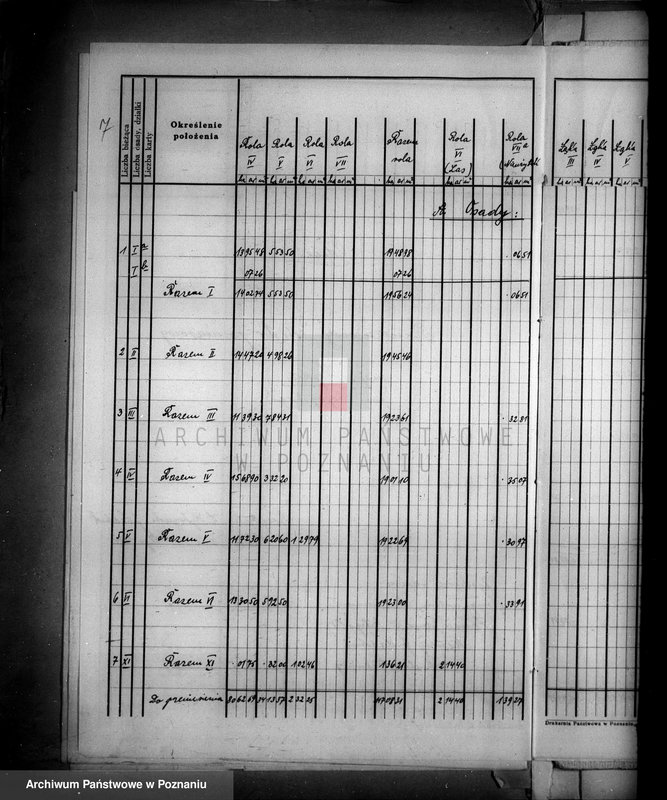 7
Liczba bieżąca
Liczba osady, działki
Liczba karty
Określenie położenia
Rola IV
Rola V
Rola VI
Rola VII
Razem rola
Rola VI (Las)
Rola VII a
Łąka III
Łąka IV
Łąka V
ha ar m² ha ar m² ha ar m² ha ar m² ha ar m² ha ar m² ha ar m² ha ar m² ha ar m² ha ar m²
A. Osady:
1 I a 139548 55350 194898 · 0651
I b 0726 0726
Razem I 140274 55350 195624 · 0651
2 II Razem II 144720 49826 194546
3 III Razem III 113930 78431 192361 · 3281
4 IV Razem IV 156890 33220 190110 · 3507
5 V Razem V 117230 62060 12979 192269 · 3097
6 VI Razem VI 133050 59250 192300 · 3391
7 XI Razem XI · 0175 · 3200 10246 13621 21440
Do przeniesienia 806269 341337 23225 1170831 21440 13927
Drukarnia Państwowa w Poznaniu
ARCHIWUM PAŃSTWOWE
W POZNANIU
Archiwum Państwowe w Poznaniu